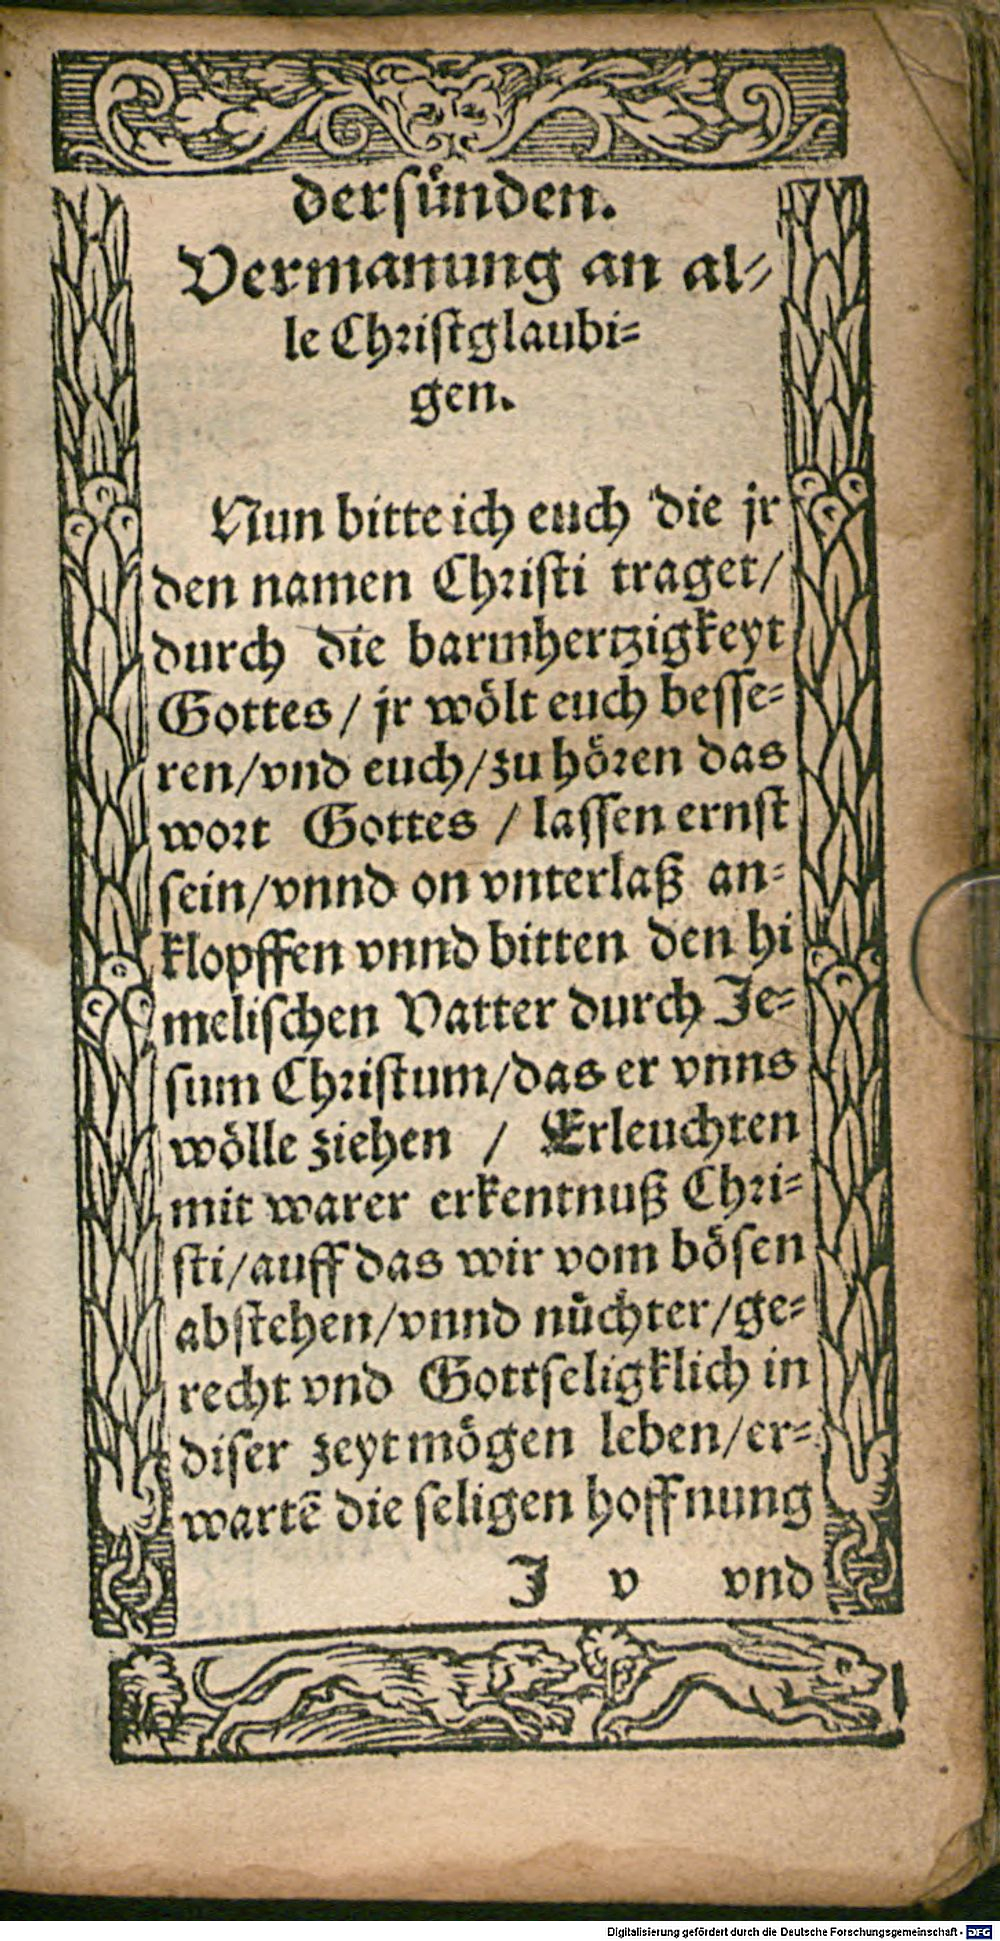 der sünden.
Vermanung an al-
le Christglaubi-
gen.
Nun bitte ich euch die jr
den namen Christi traget/
durch die barmhertzigkeyt
Gottes/ jr wölt euch besse-
ren/vnd euch/zu hören das
wort Gottes / lassen ernst
sein/vnnd on vnterlaß an-
klopffen vnnd bitten den hi
melischen Vatter durch Je-
sum Christum/das er vnns
wölle ziehen / Erleuchten
mit warer erkentnuß Chri-
sti/auff das wir vom bösen
abstehen/vnnd nüchter/ge-
recht vnd Gottseligklich in
diser zeyt mögen leben/er-
wartẽ die seligen hoffnung
J v vnd
Digitalisierung gefördert durch die Deutsche Forschungsgemeinschaft - DFG